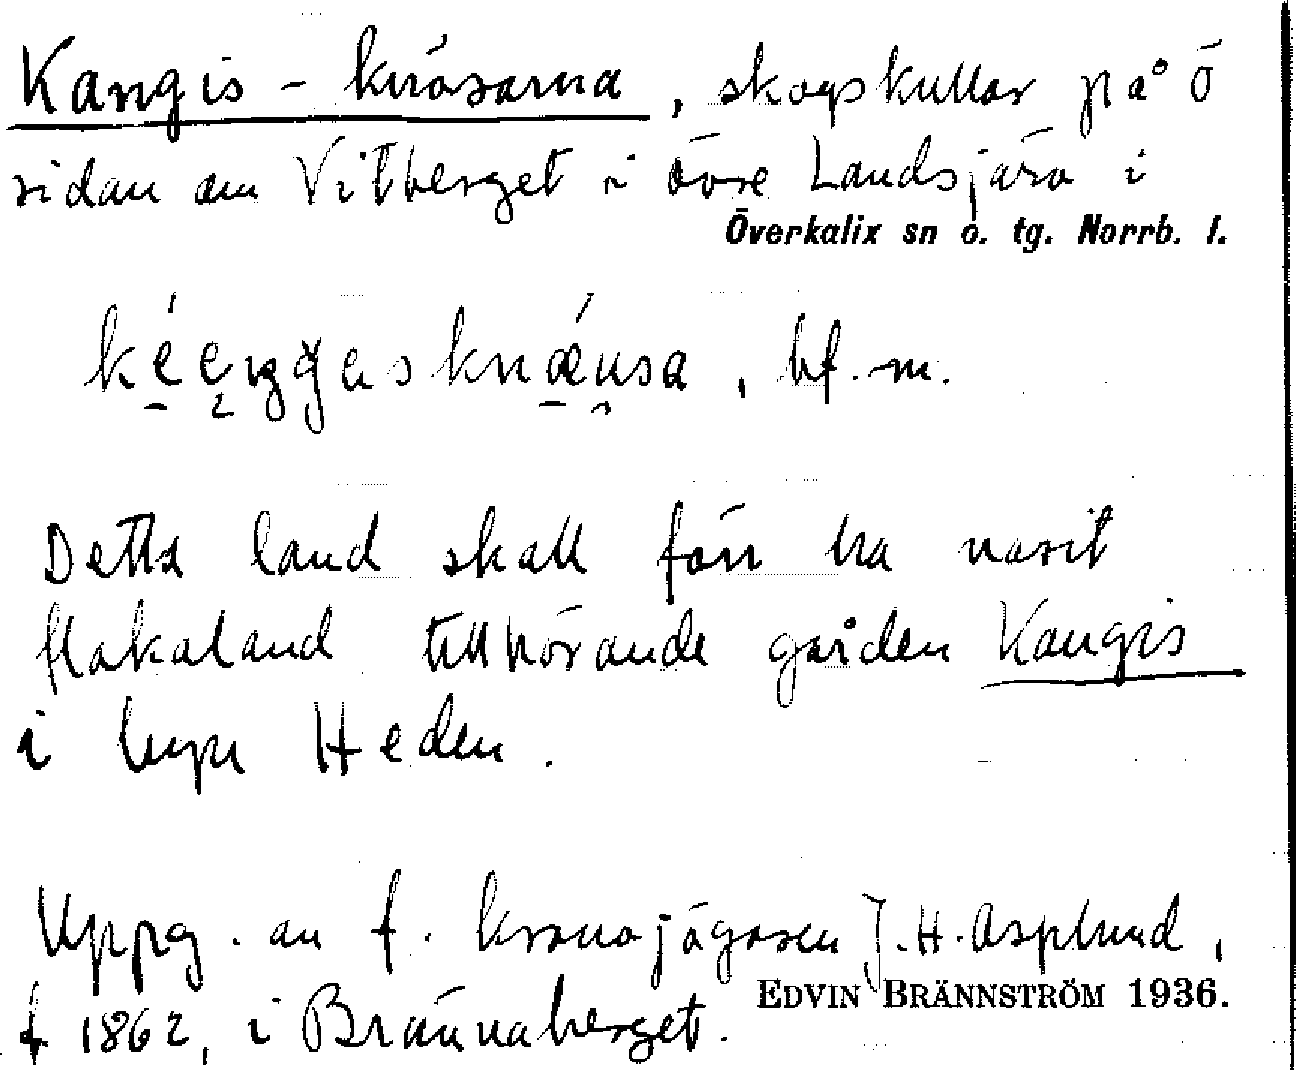 Kangis-knösarna, skogskullar på Ö
sidan av Vitberget i övre Landsjärv i
Överkalix sn o. tg. Norrb. l.
bf. m.
Detta land skall förr ha varit
flakaland tillhörande gården Kangis
i byn Heden.
Uppg. av f. kronojägaren J. H. Asplund,
f 1862, i Brännaberget.
EDVIN BRÄNNSTRÖM 1936.